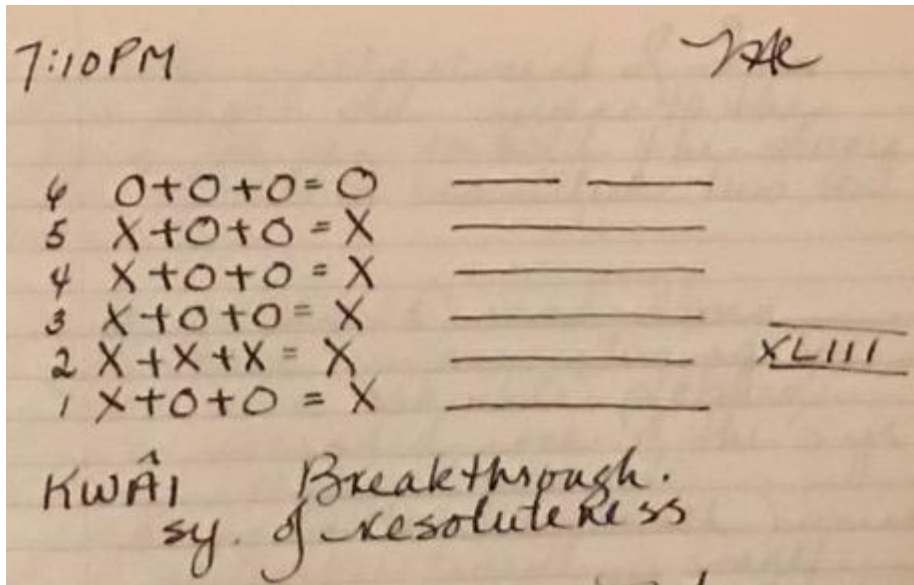 7:10PM
6 O+O+O=O
5 X+O+O=X
4 X+O+O=X
3 X+O+O=X
2 X+X+X=X
XLIII
1 X+O+O=X
KWÂI Breakthrough.
sy. of resoluteness